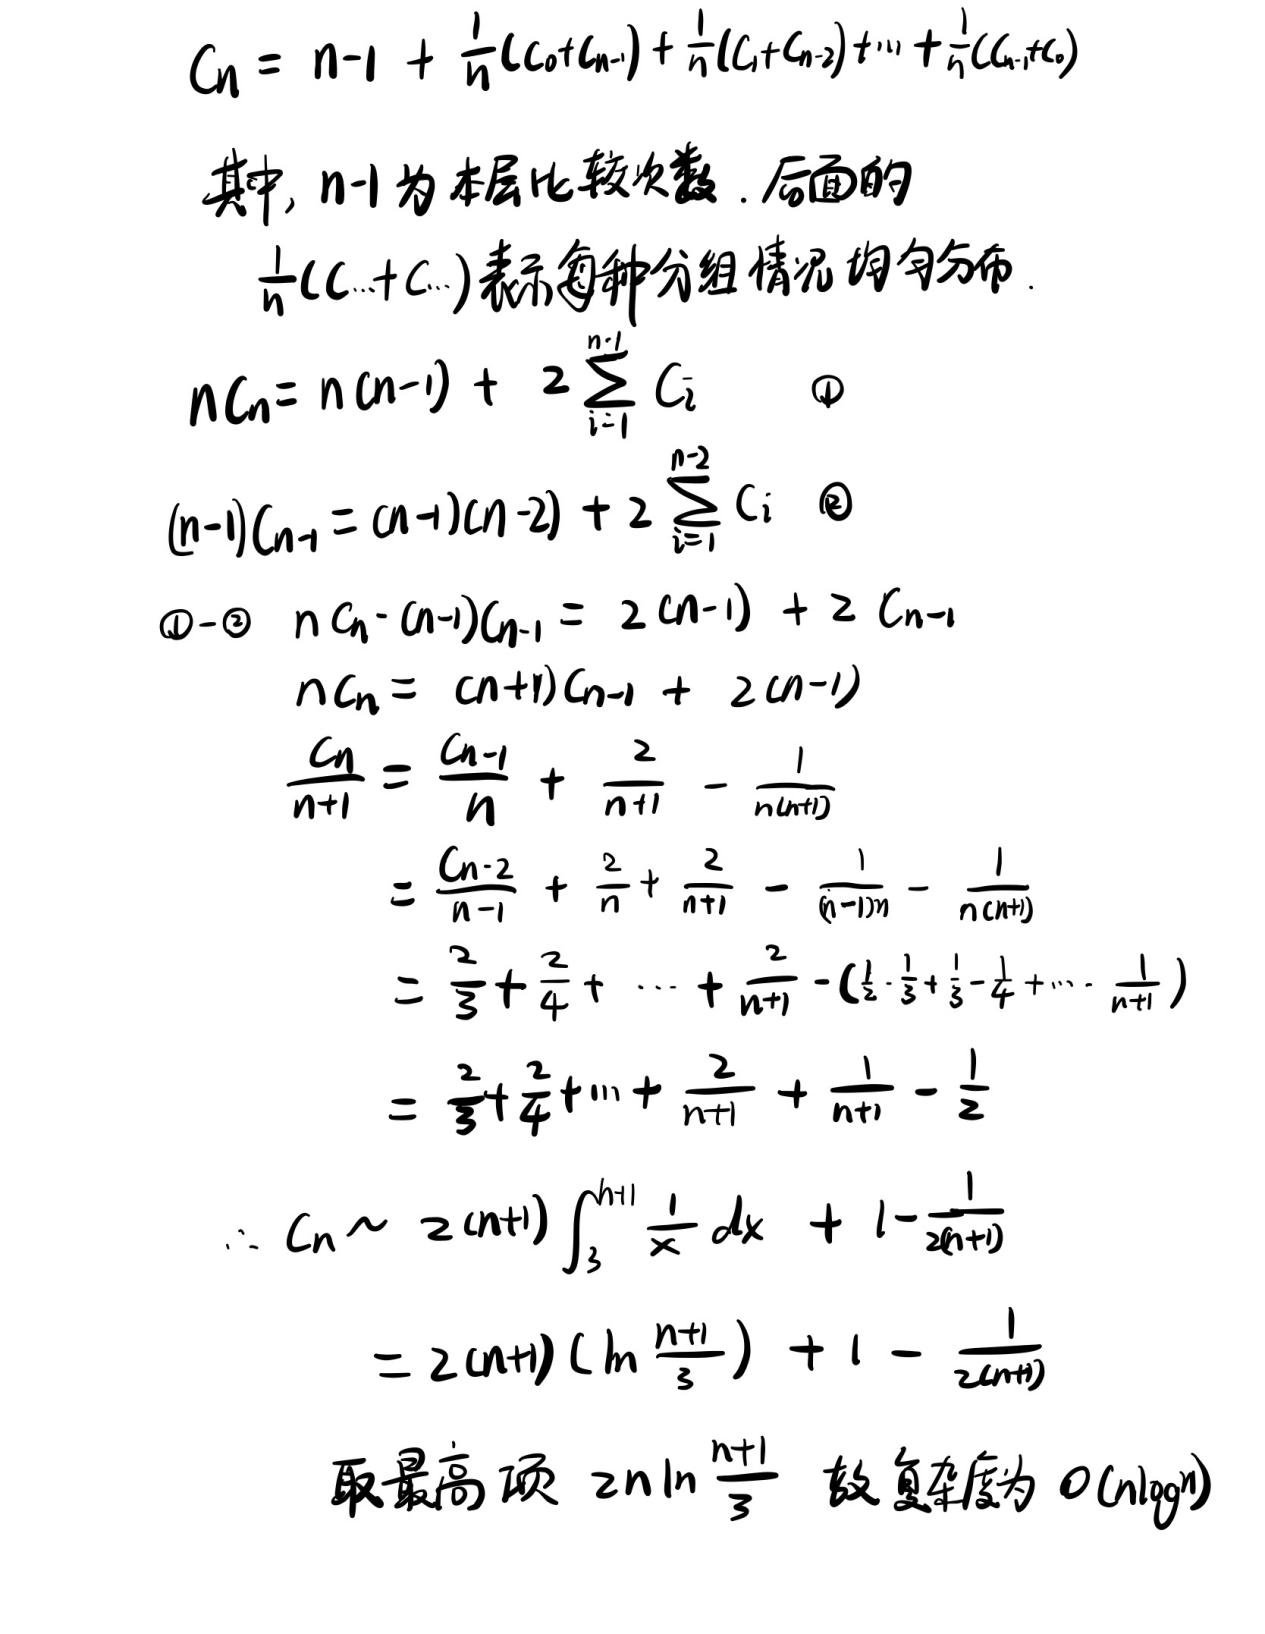 Cn = n-1 + 1/n(C0+Cn-1) + 1/n(C1+Cn-2) + ... + 1/n(Cn-1+C0)
其中, n-1 为本层比较次数. 后面的
1/n(C...+C...)表示每种分组情况均匀分布.
nCn = n(n-1) + 2∑_{i=1}^{n-1} Ci ①
(n-1)Cn-1 = (n-1)(n-2) + 2∑_{i=1}^{n-2} Ci ②
①-② nCn-(n-1)Cn-1 = 2(n-1) + 2Cn-1
nCn = (n+1)Cn-1 + 2(n-1)
Cn/(n+1) = Cn-1/n + 2/(n+1) - 1/(n(n+1))
= Cn-2/(n-1) + 2/n + 2/(n+1) - 1/((n-1)n) - 1/(n(n+1))
= 2/3 + 2/4 + ... + 2/(n+1) - (1/2 - 1/3 + 1/3 - 1/4 + ... - 1/(n+1))
= 2/3 + 2/4 + ... + 2/(n+1) + 1/(n+1) - 1/2
∴ Cn ~ 2(n+1)∫_3^{n+1} 1/x dx + 1 - 1/(2(n+1))
= 2(n+1)(ln (n+1)/3) + 1 - 1/(2(n+1))
取最高项 2n ln (n+1)/3 故复杂度为 O(nlogn)